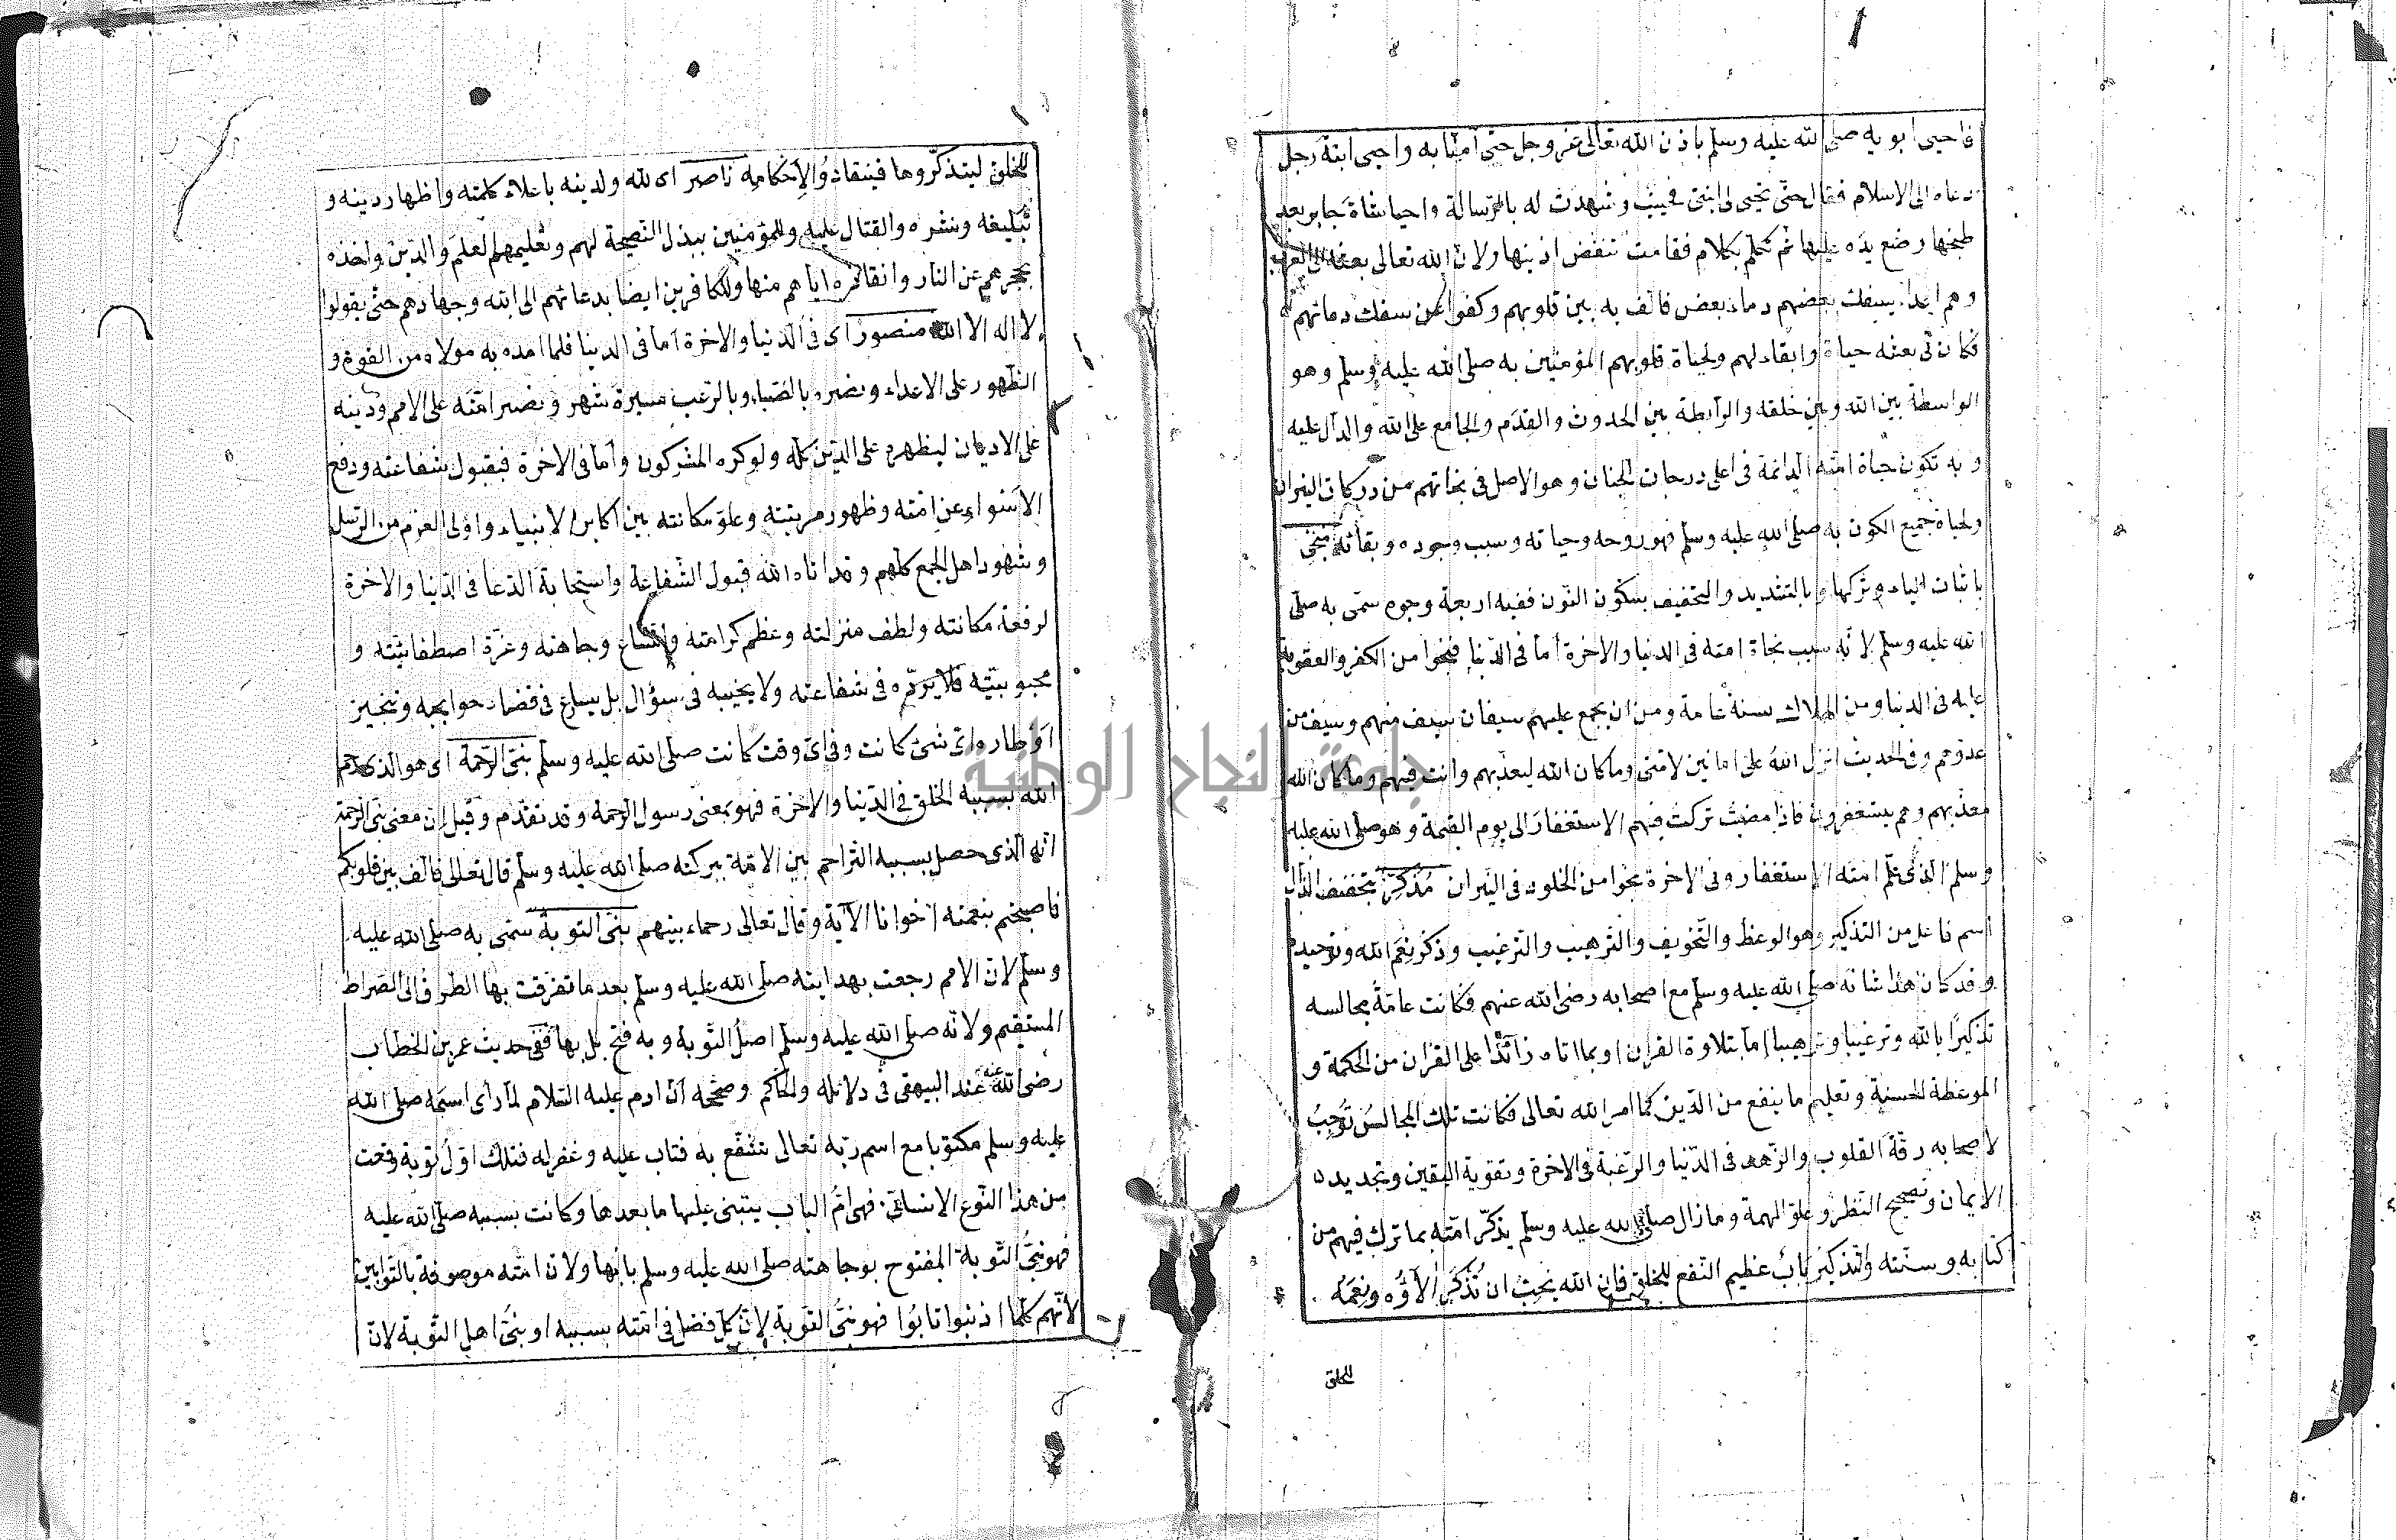 فاحيى ابويه صلى الله عليه وسلم باذن الله تعالى عز وجل حتى آمنا به واحيى ابنة رجل
دعاه الى الاسلام فقال حتى تحيى لى ابنتى فحييت وشهدت له بالرسالة واحيا شاة جابر بعد
طبخها وضع يده عليها ثم تكلم بكلام فقامت تنفض اذنيها ولان الله تعالى بعثه الى العرب
وهم اعداء يسفك بعضهم دماء بعض فالف به بين قلوبهم وكفوا عن سفك دمائهم
فكان فى بعثه حياة وابقاء لهم ولحياة قلوبهم المؤمنين به صلى الله عليه وسلم وهو
الواسطة بين الله وبين خلقه والرابطة بين الحدوث والقدم والجامع على الله والدال عليه
و به تكون حياة امته الدائمة فى اعلى درجات الجنان وهو الاصل فى نجاتهم من دركات النيران
ولحياة جميع الكون به صلى الله عليه وسلم فهو روحه وحياته وسبب وجوده وبقائه منجى
باثبات الياء وتركها وبالتشديد والتخفيف بسكون النون ففيه اربعة وجوه سمى به صلى
الله عليه وسلم لانه سبب نجاة امته فى الدنيا والاخرة اما فى الدنيا فنجوا من الكفر والعقوبة
عليه فى الدنيا ومن الهلاك بسنة عامة ومن ان يجمع عليهم سيفان سيف منهم وسيف من
عدوهم وفى الحديث انزل الله على امانين لامتى وما كان الله ليعذبهم وانت فيهم وما كان الله
معذبهم وهم يستغفرون فاذا مضيت تركت فيهم الاستغفار الى يوم القيمة وهو صلى الله عليه
وسلم الذى علم امته الاستغفار وفى الاخرة نجوا من الخلود فى النيران مذكر بتخفيف الذال
اسم فاعل من التذكير وهو الوعظ والتخويف والترهيب والترغيب وذكر نعم الله وتوحيده
وقد كان هذا شانه صلى الله عليه وسلم مع اصحابه رضى الله عنهم فكانت عامة مجالسه
تذكيرا بالله وترغيبا وترهيبا اما بتلاوة القران او بما اتاه زائدا على القران من الحكمة و
الموعظة الحسنة وتعليم ما ينفع من الدين كما امر الله تعالى فكانت تلك المجالس توجب
لاصحابه رقة القلوب والزهد فى الدنيا والرغبة فى الاخرة وتقوية اليقين وتجديد
الايمان وتصحيح النظر وعلو الهمة وما زال صلى الله عليه وسلم يذكر امته بما ترك فيهم من
كتابه وسنته والتذكير باب عظيم النفع للخلق فان الله يحب ان تذكر الآؤه ونعمه
للخلق
للخلق ليتذكروها فينقادوا لاحكامه ناصر اى لله ولدينه باعلاء كلمته واظهار دينه و
تبليغه ونشره والقتال عليه وللمؤمنين ببذل النصيحة لهم وتعليمهم العلم والدين واخذه
بحجزهم عن النار وانقاذه اياهم منها وللكافرين ايضا بدعائهم الى الله وجهادهم حتى يقولوا
لا اله الا الله منصور اى فى الدنيا والاخرة اما فى الدنيا فلما امده به مولاه من القوة و
الظهور على الاعداء ونصره بالصبا وبالرعب مسيرة شهر ونصر امته على الامم ودينه
على الاديان ليظهره على الدين كله ولو كره المشركون واما فى الاخرة فبقبول شفاعته ودفع
الاسواء عن امته وظهور مرتبته وعلو مكانته بين اكابر الانبياء واولى العزم من الرسل
وشهود اهل الجمع كلهم وقد اتاه الله قبول الشفاعة واستجابة الدعا فى الدنيا والاخرة
لرفعة مكانته ولطف منزلته وعظم كرامته واتساع وجاهته وعزة اصطفائيته و
محبوبيته فلا يرده فى شفاعته ولا يخيبه فى سؤال بل يسارع فى قضاء حوايجه وتنجيز
اوطاره اى شئ كانت وفى اى وقت كانت صلى الله عليه وسلم نبى الرحمة اى هو الذى رحم
الله بسببه الخلق فى الدنيا والاخرة فهو بمعنى رسول الرحمة وقد تقدم وقيل ان معنى نبى الرحمة
انه الذى حصل بسببه التراحم بين الامة ببركته صلى الله عليه وسلم قال تعالى فالف بين قلوبكم
فاصبحتم بنعمته اخوانا الآية وقال تعالى رحماء بينهم نبى التوبة سمى به صلى الله عليه
وسلم لان الامم رجعت بهدايته صلى الله عليه وسلم بعد ما تفرقت بها الطرق الى الصراط
المستقيم ولانه صلى الله عليه وسلم اصل التوبة وبه فتح بابها ففى حديث عمر بن الخطاب
رضى الله عنه عند البيهقى فى دلائله والحاكم وصححه ان ادم عليه السلام لما رأى اسمه صلى الله
عليه وسلم مكتوبا مع اسم ربه تعالى تشفع به فتاب عليه وغفر له فتلك اول توبة وقعت
من هذا النوع الانسانى فهى ام الباب يبتنى عليها ما بعدها وكانت بسببه صلى الله عليه
فهو نبى التوبة المفتوح بوجاهته صلى الله عليه وسلم بابها ولان امته موصوفة بالتوابين
لانهم كلما اذنبوا تابوا فهو نبى التوبة لان كل فضل فى امته بسببه او نبى اهل التوبة لان
جامعة النجاح الوطنية